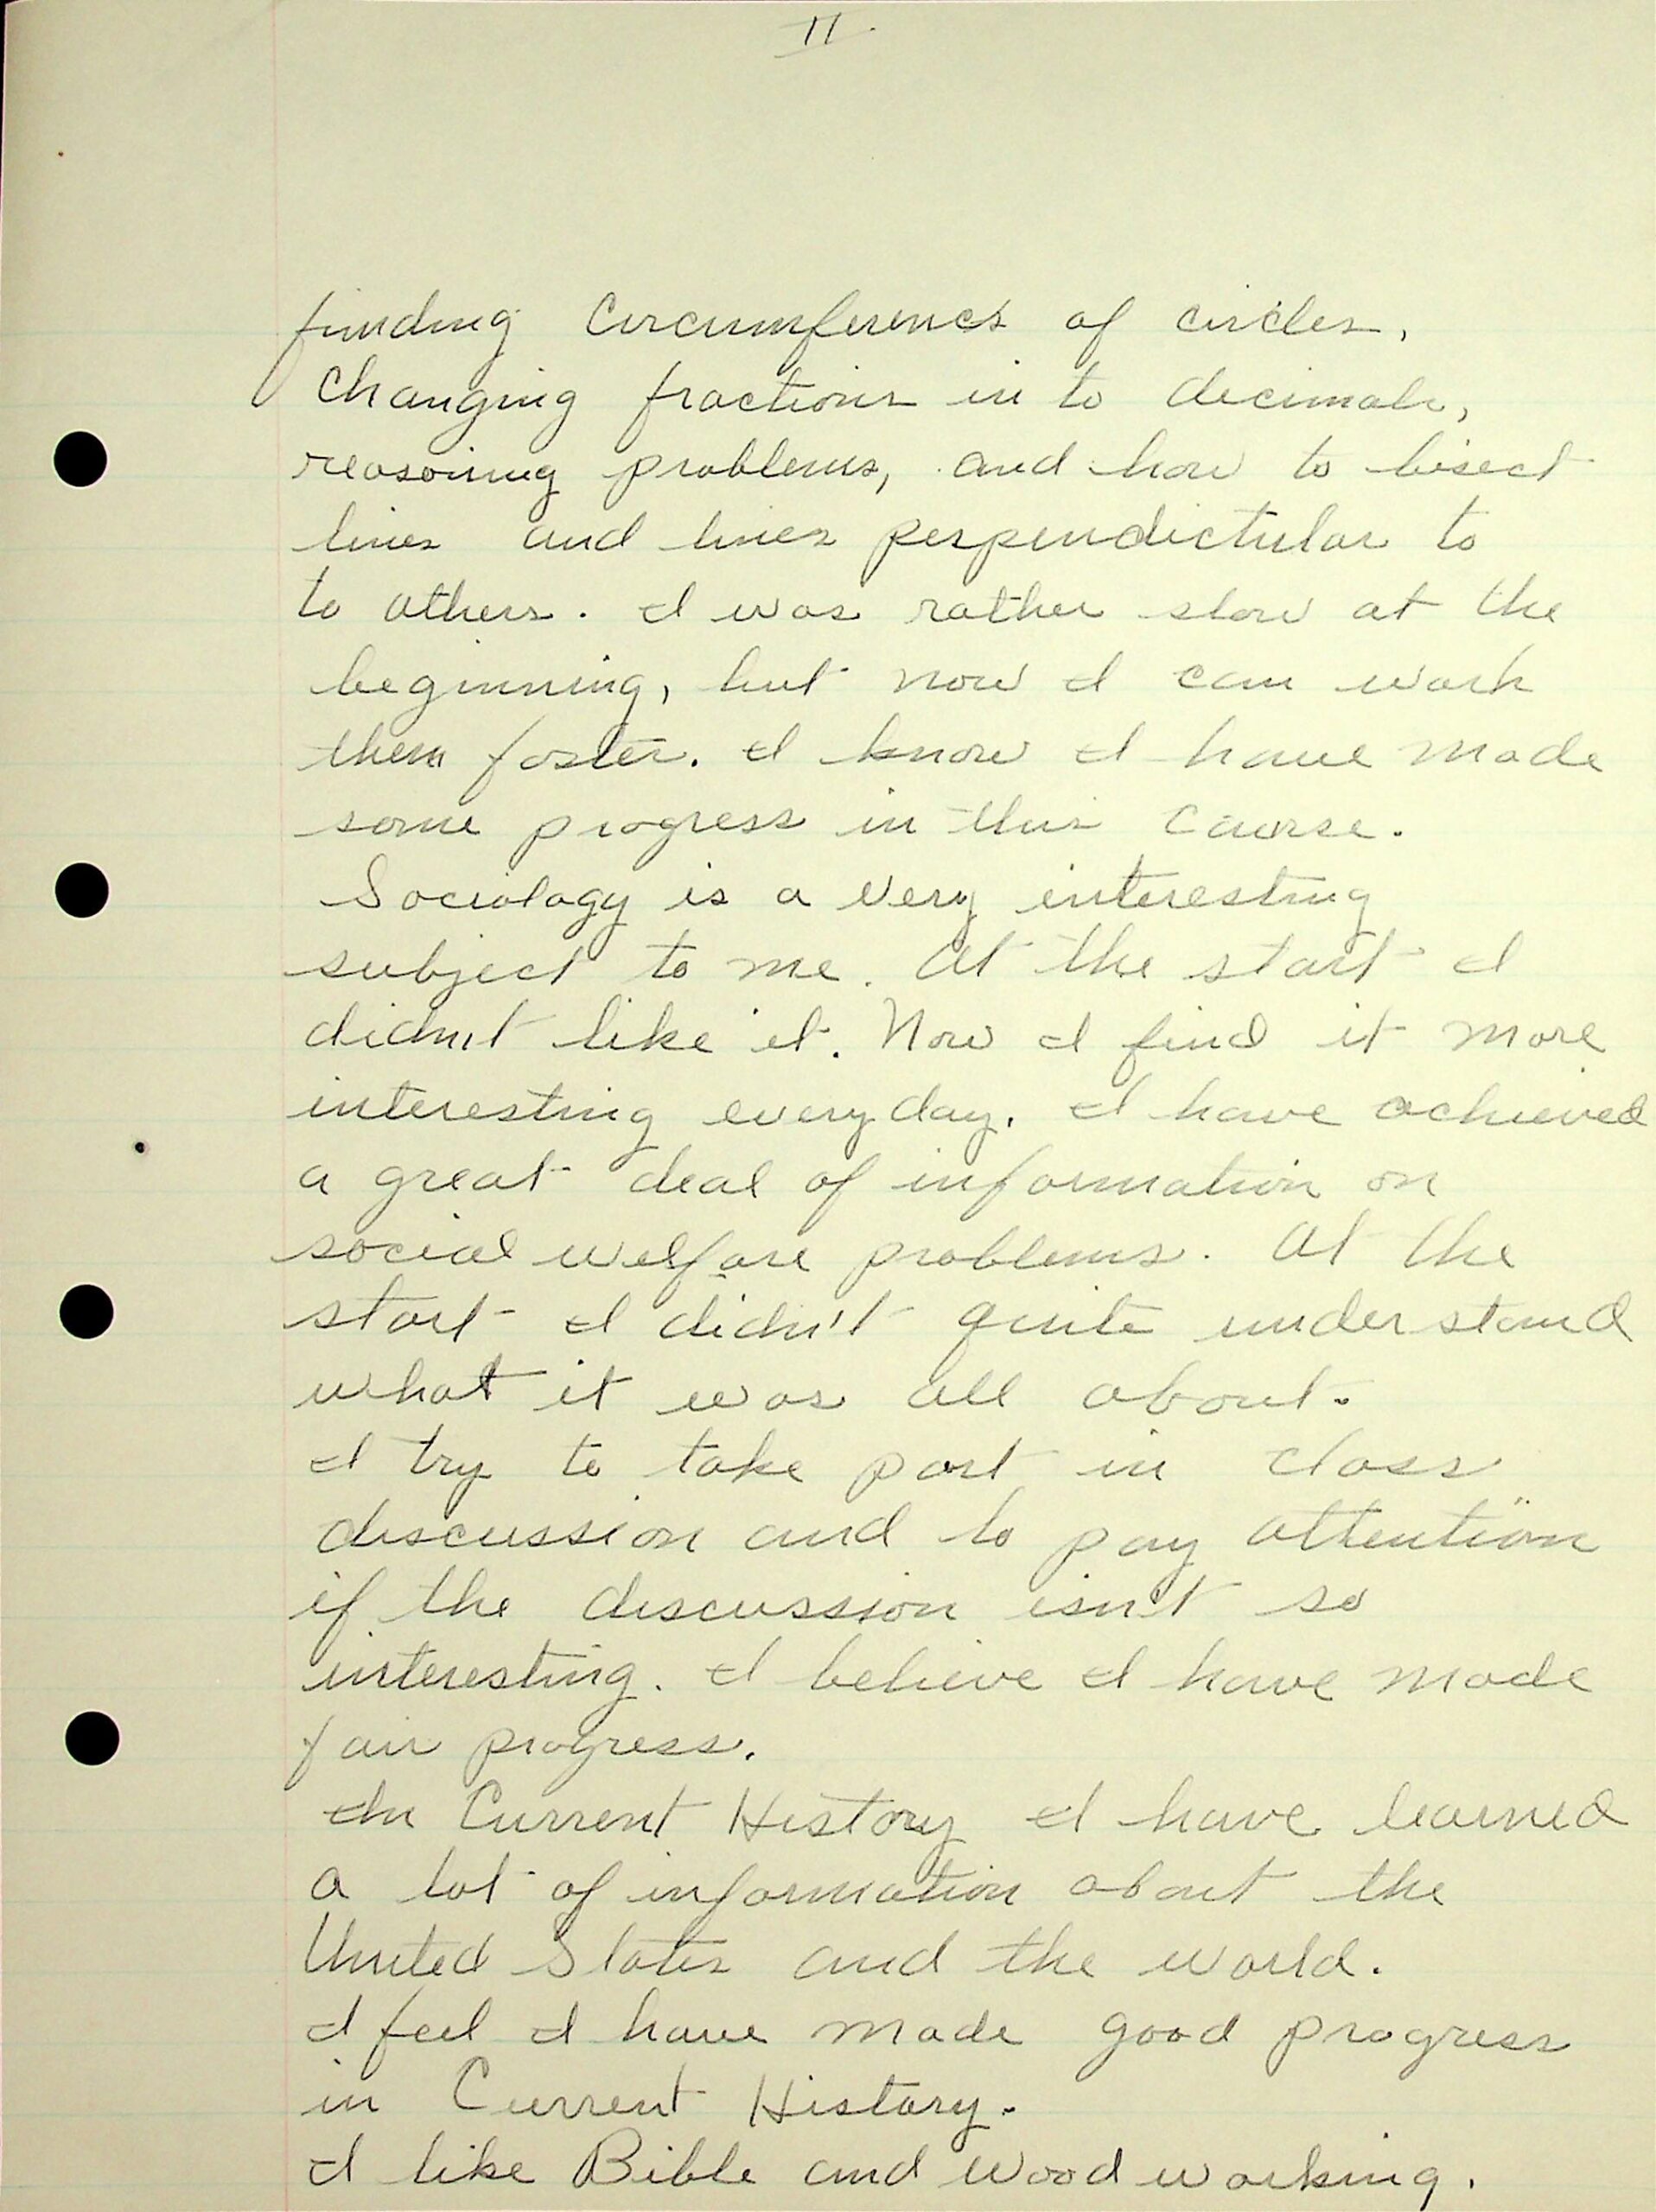 11.
finding Circumferences of circles,
Changing fractions in to decimals,
reasoning problems, and how to bisect
lines and lines perpendictular to
to others. I was rather slow at the
beginning, but now I can work
them faster. I know I have made
some progress in this course.
Sociology is a very interesting
subject to me. At the start I
didn't like it. Now I find it more
interesting everyday. I have achieved
a great deal of information on
social welfare problems. At the
start I didn't quite understand
what it was all about.
I try to take part in class
discussion and to pay attention
if the discussion isn't so
interesting. I believe I have made
fair progress.
In Current History I have learned
a lot of information about the
United States and the world.
I feel I have made good progress
in Current History.
I like Bible and Wood working.